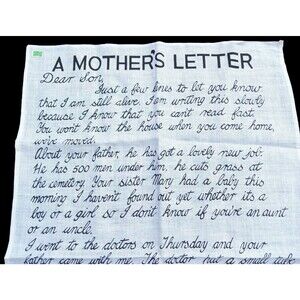 A MOTHER'S LETTER
Dear Son,
Just a few lines to let you know
that I am still alive. I am writing this slowly
because I know that you can't read fast.
You won't know the house when you come home,
we've moved.
About your father, he has got a lovely new job.
He has 500 men under him, he cuts grass at
the cemetery. Your sister Mary had a baby this
morning I haven't found out yet whether it's a
boy or a girl so I don't know if you're an aunt
or an uncle.
I went to the doctors on Thursday and your
father came with me. The doctor put a small tube